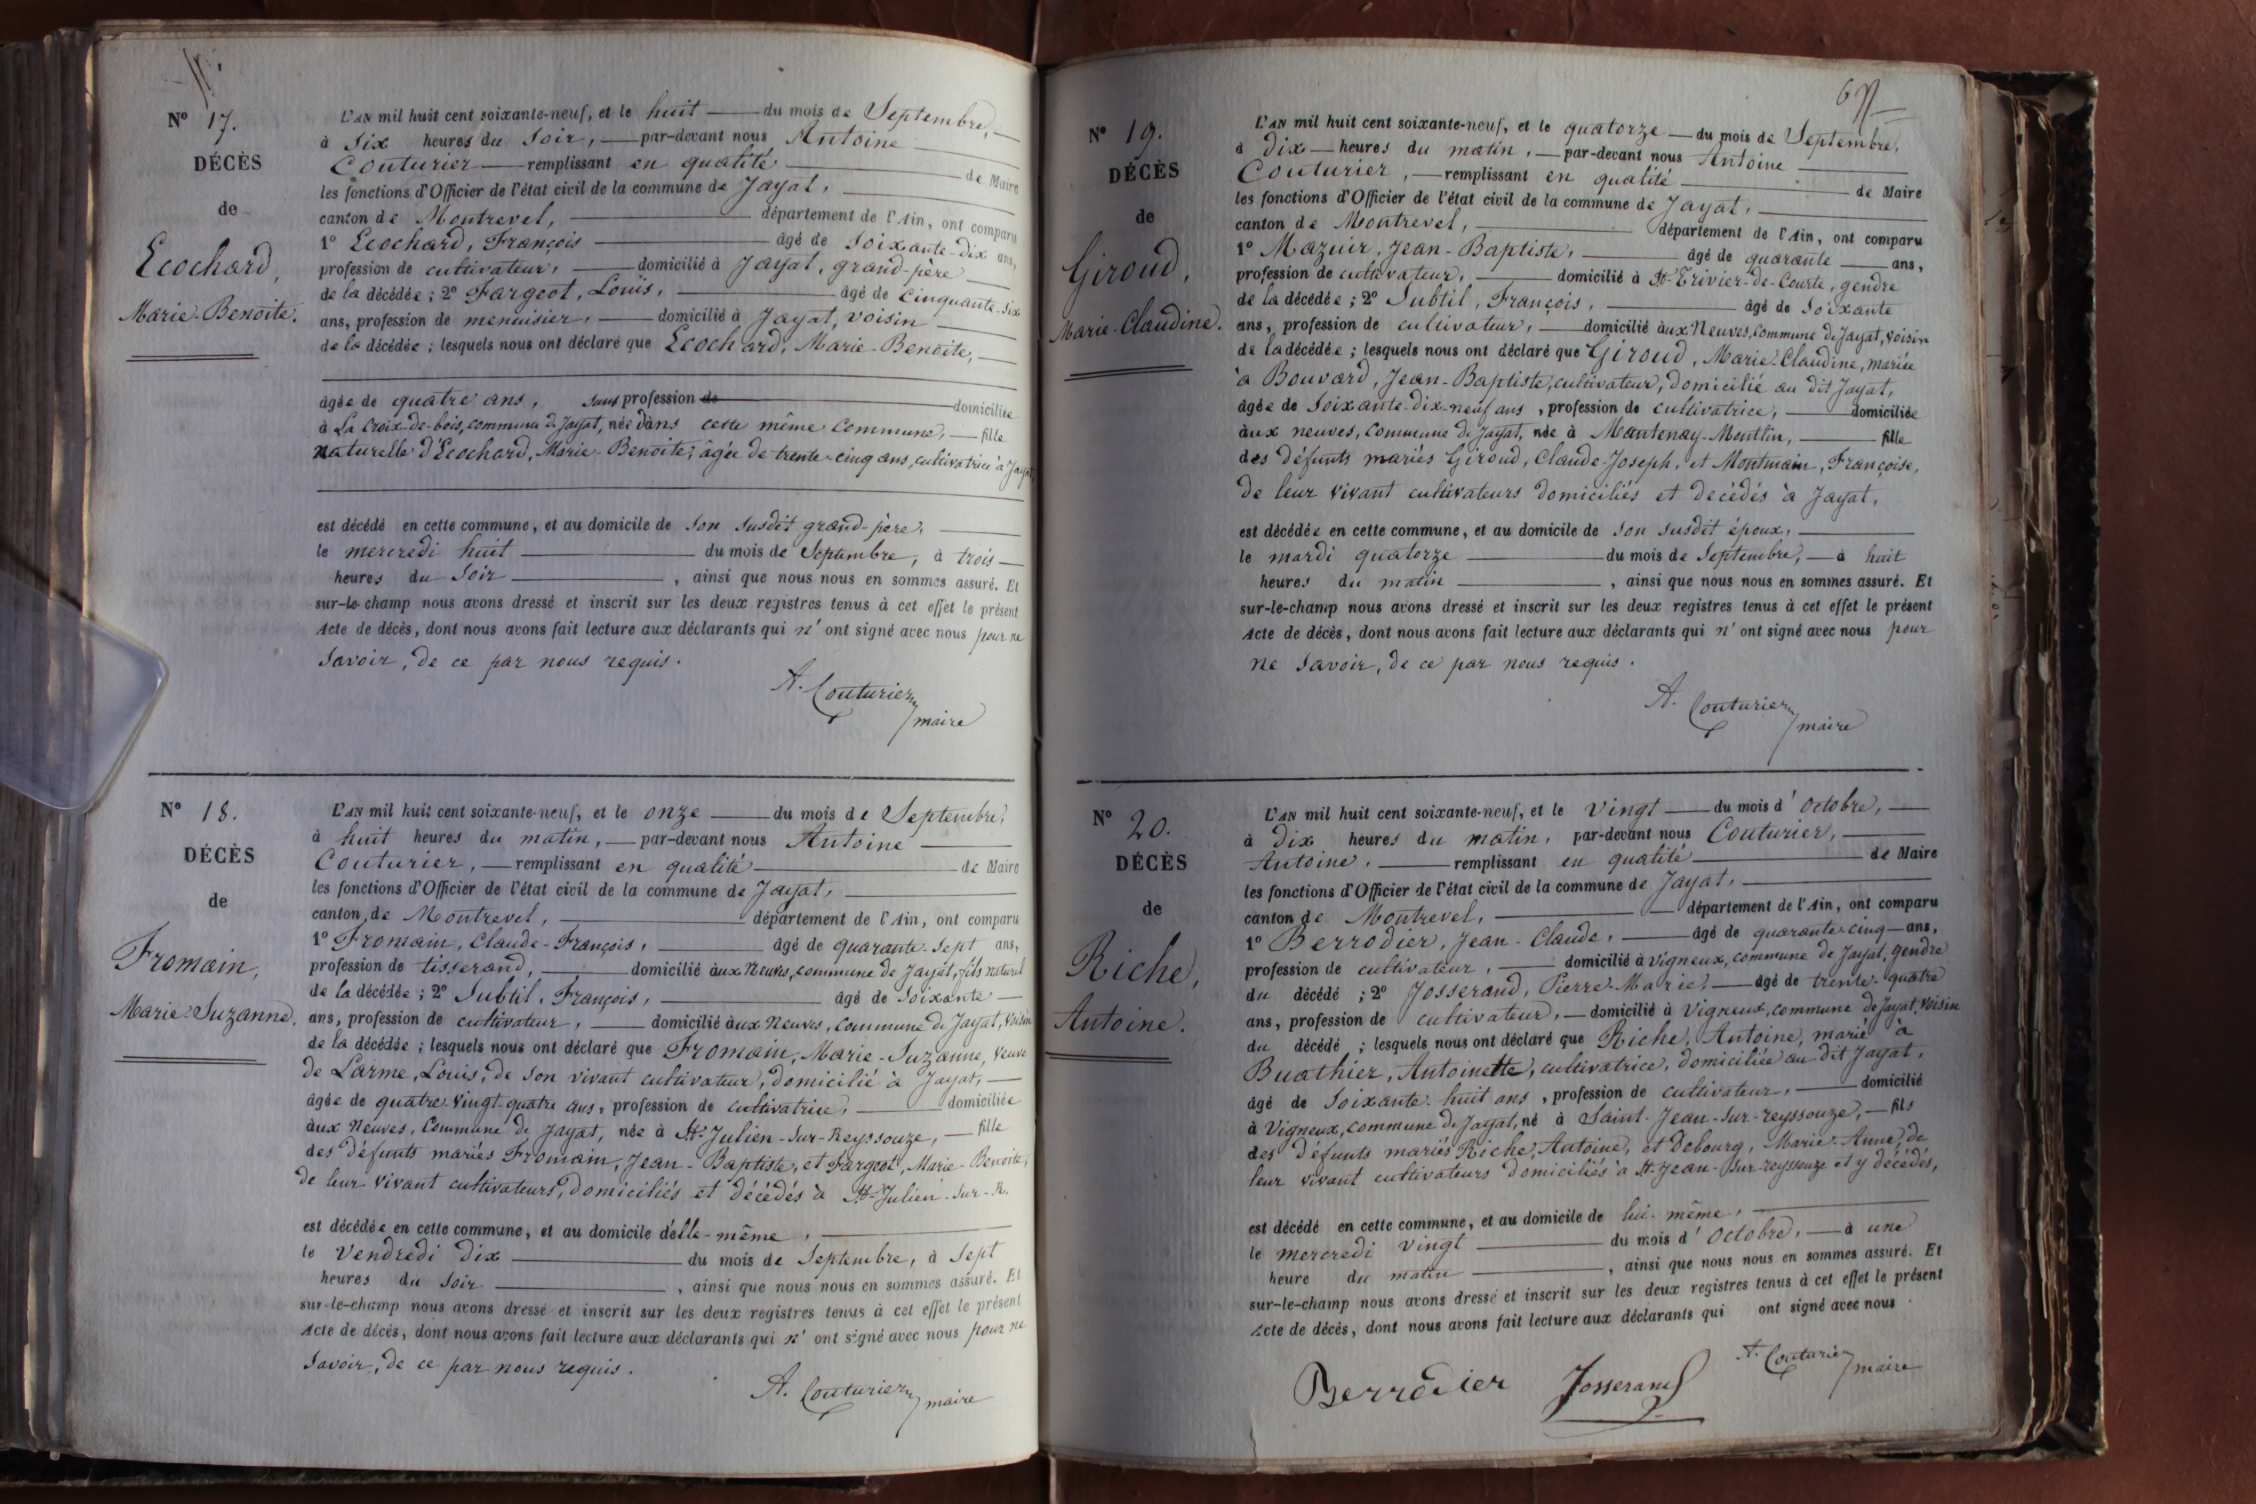 Nº 17.
DÉCÈS
de
Ecochard,
Marie-Benoite.
L'AN mil huit cent soixante-neuf, et le huit du mois de Septembre,
à Six heures du Soir, par-devant nous Antoine
Couturier remplissant en qualité de Maire
les fonctions d'Officier de l'état civil de la commune de Jayat,
canton de Montrevel, département de l'Ain, ont comparu
1º Ecochard, François âgé de Soixante-dix ans,
profession de cultivateur, domicilié à Jayat, grand-père
de la décédée ; 2º Fargeot, Louis, âgé de Cinquante-six
ans, profession de menuisier, domicilié à Jayat, voisin
de la décédée ; lesquels nous ont déclaré que Ecochard, Marie-Benoite,
âgée de quatre ans, sans profession de domiciliée
à La Croix-de-bois, commune de Jayat, née dans cette même commune, fille
naturelle d'Ecochard, Marie-Benoite, âgée de trente-cinq ans, cultivatrice à Jayat,
est décédé en cette commune, et au domicile de son susdit grand-père,
le mercredi huit du mois de Septembre, à trois
heures du Soir, ainsi que nous nous en sommes assuré. Et
sur-le-champ nous avons dressé et inscrit sur les deux registres tenus à cet effet le présent
Acte de décès, dont nous avons fait lecture aux déclarants qui n'ont signé avec nous pour ne
Savoir, de ce par nous requis.
A. Couturier
maire
Nº 18.
DÉCÈS
de
Fromain,
Marie-Suzanne.
L'AN mil huit cent soixante-neuf, et le onze du mois de Septembre,
à huit heures du matin, par-devant nous Antoine
Couturier, remplissant en qualité de Maire
les fonctions d'Officier de l'état civil de la commune de Jayat,
canton de Montrevel, département de l'Ain, ont comparu
1º Fromain, Claude-François, âgé de quarante-sept ans,
profession de tisserand, domicilié aux Neuves, commune de Jayat, fils naturel
de la décédée ; 2º Subtil, François, âgé de Soixante
ans, profession de cultivateur, domicilié aux Neuves, commune de Jayat, voisin
de la décédée ; lesquels nous ont déclaré que Fromain, Marie-Suzanne, veuve
de Larme, Louis, de son vivant cultivateur, domicilié à Jayat,
âgée de quatre-vingt-quatre ans, profession de cultivatrice, domiciliée
aux Neuves, Commune de Jayat, née à St-Julien-sur-Reyssouze, fille
des défunts mariés Fromain, Jean-Baptiste, et Fargeot, Marie-Benoite,
de leur vivant cultivateurs, domiciliés et décédés à St-Julien-sur-R.
est décédée en cette commune, et au domicile d'elle-même,
le Vendredi dix du mois de Septembre, à Sept
heures du Soir, ainsi que nous nous en sommes assuré. Et
sur-le-champ nous avons dressé et inscrit sur les deux registres tenus à cet effet le présent
Acte de décès, dont nous avons fait lecture aux déclarants qui n'ont signé avec nous pour ne
Savoir, de ce par nous requis.
A. Couturier
maire
Nº 19.
DÉCÈS
de
Giroud,
Marie-Claudine.
L'AN mil huit cent soixante-neuf, et le quatorze du mois de Septembre,
à dix heures du matin, par-devant nous Antoine
Couturier, remplissant en qualité de Maire
les fonctions d'Officier de l'état civil de la commune de Jayat,
canton de Montrevel, département de l'Ain, ont comparu
1º Mazuir, Jean-Baptiste, âgé de quarante ans,
profession de cultivateur, domicilié à St-Trivier-de-Courte, gendre
de la décédée ; 2º Subtil, François, âgé de Soixante
ans, profession de cultivateur, domicilié aux Neuves, commune de Jayat, voisin
de la décédée ; lesquels nous ont déclaré que Giroud, Marie-Claudine, mariée
à Bouvard, Jean-Baptiste, cultivateur, domicilié au dit Jayat,
âgée de Soixante-dix-neuf ans, profession de cultivatrice, domiciliée
aux neuves, commune de Jayat, née à Mantenay-Montlin, fille
des défunts mariés Giroud, Claude-Joseph, et Montmain, Françoise,
de leur vivant cultivateurs domiciliés et décédés à Jayat,
est décédée en cette commune, et au domicile de son susdit époux,
le mardi quatorze du mois de Septembre, à huit
heures du matin, ainsi que nous nous en sommes assuré. Et
sur-le-champ nous avons dressé et inscrit sur les deux registres tenus à cet effet le présent
Acte de décès, dont nous avons fait lecture aux déclarants qui n'ont signé avec nous pour
ne Savoir, de ce par nous requis.
A. Couturier
maire
Nº 20.
DÉCÈS
de
Riche,
Antoine.
L'AN mil huit cent soixante-neuf, et le Vingt du mois d'Octobre,
à dix heures du matin, par-devant nous Couturier,
Antoine, remplissant en qualité de Maire
les fonctions d'Officier de l'état civil de la commune de Jayat,
canton de Montrevel, département de l'Ain, ont comparu
1º Berrodier, Jean-Claude, âgé de quarante-cinq ans,
profession de cultivateur, domicilié à Vigneux, commune de Jayat, gendre
du décédé ; 2º Josserand, Pierre-Marie, âgé de trente-quatre
ans, profession de cultivateur, domicilié à Vigneux, commune de Jayat, voisin
du décédé ; lesquels nous ont déclaré que Riche, Antoine, marié à
Buathier, Antoinette, cultivatrice, domiciliée au dit Jayat,
âgé de Soixante-huit ans, profession de cultivateur, domicilié
à Vigneux, commune de Jayat, né à Saint-Jean-sur-reyssouze, fils
des défunts mariés Riche, Antoine, et Debourg, Marie-Anne, de
leur vivant cultivateurs domiciliés à St-Jean-sur-reyssouze et y décédés,
est décédé en cette commune, et au domicile de lui-même,
le mercredi vingt du mois d'Octobre, à une
heure du matin, ainsi que nous nous en sommes assuré. Et
sur-le-champ nous avons dressé et inscrit sur les deux registres tenus à cet effet le présent
Acte de décès, dont nous avons fait lecture aux déclarants qui ont signé avec nous.
Berrodier Josserand A. Couturier
maire